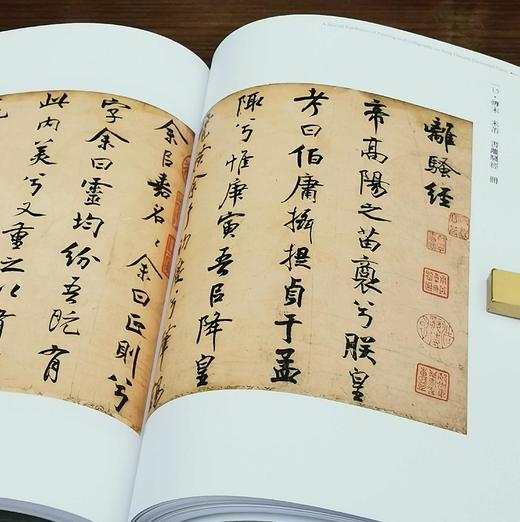 A Special Exhibition of Painting and Calligraphy on
傳宋 米芾 書離騷經 冊
離騷經
帝高陽之苗裔兮朕皇
考曰伯庸攝提貞于孟
陬兮惟庚寅吾㠯降皇
余㠯嘉名〻余曰正則兮
字余曰靈均紛吾既有
此内美兮又重之以